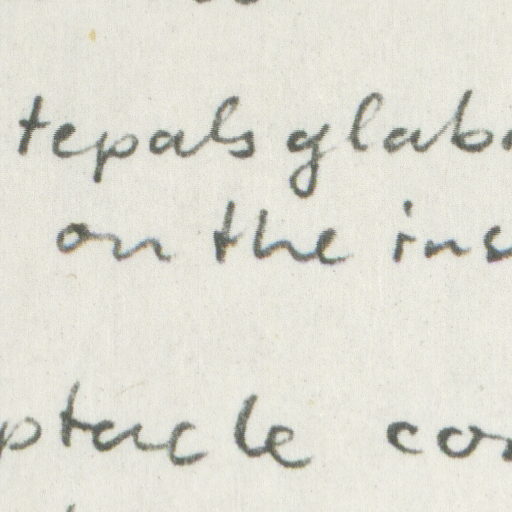 tepals glab
on the ins
ptacle co